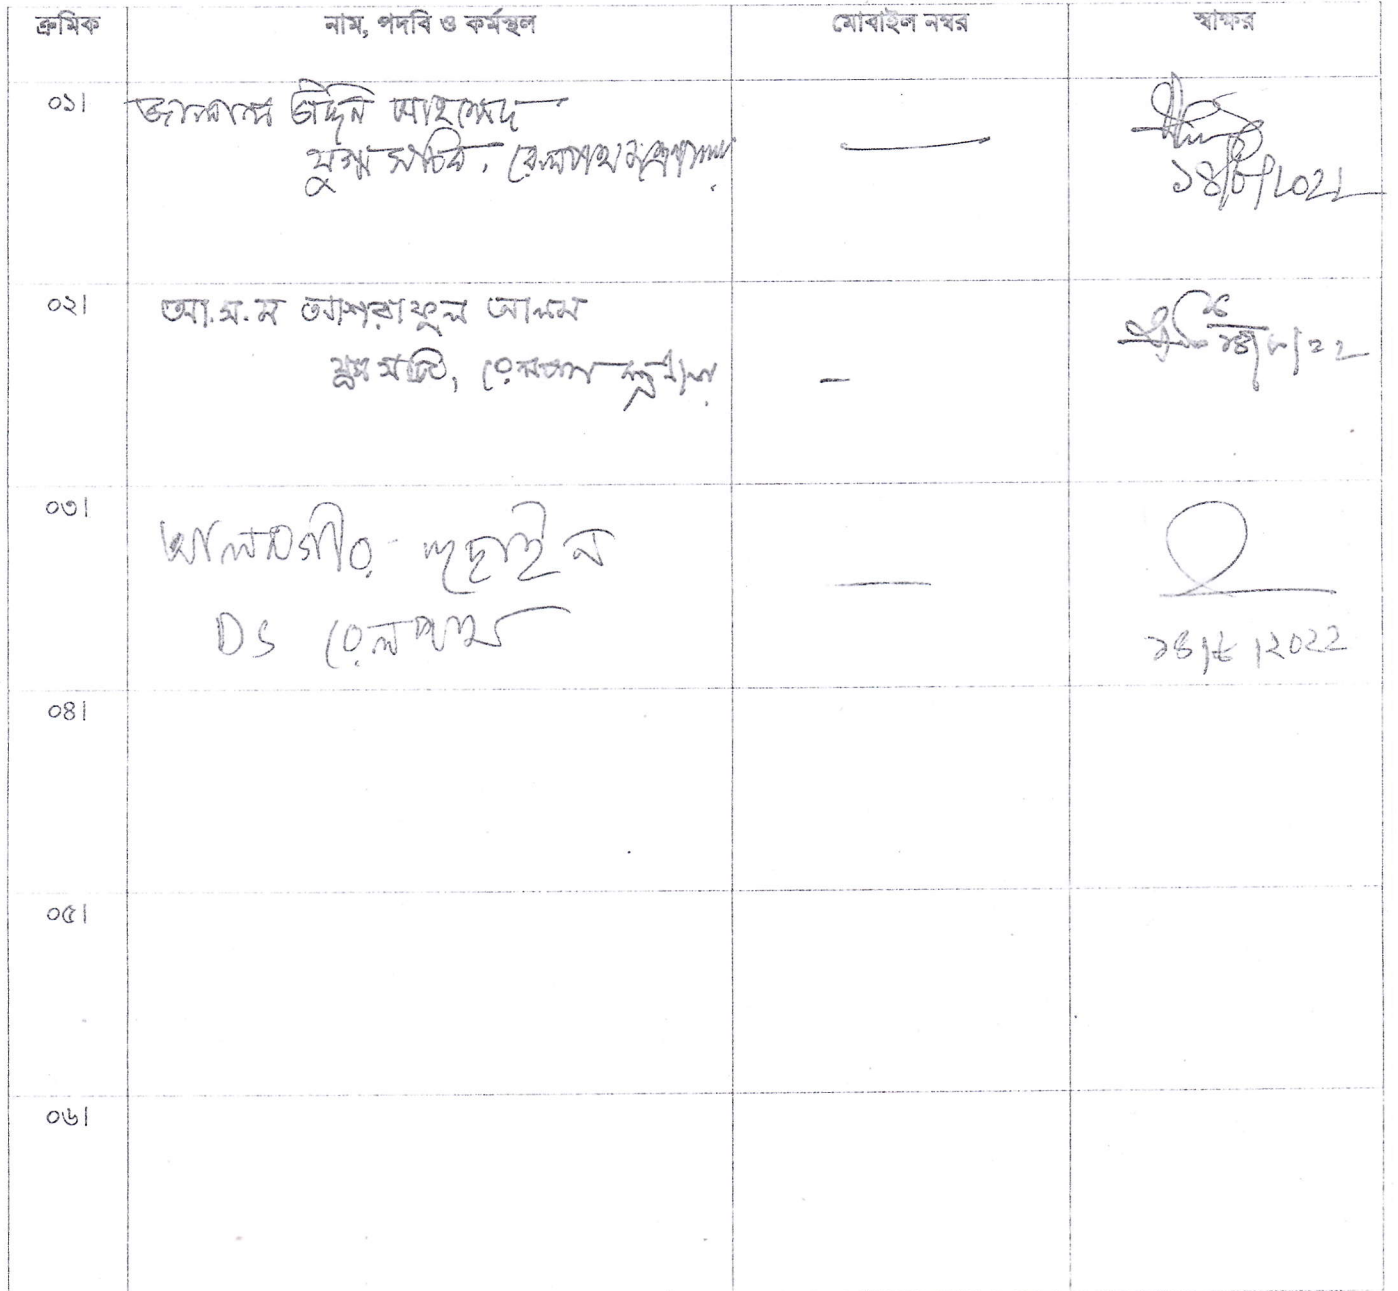 ক্রমিক নাম, পদবি ও কর্মস্থল মোবাইল নম্বর স্বাক্ষর
০১। জালাল উদ্দিন আহম্মেদ
যুগ্ম সচিব, রেলপথ মন্ত্রণালয়
১৪/৮/২০২২
০২। আ.স.ম আশরাফুল আলম
যুগ্ম সচিব, রেলপথ মন্ত্রণালয়
১৪/৮/২২
০৩। আলমগীর হুছাইন
DS রেলপথ
১৪/৮/২০২২
০৪।
০৫।
০৬।